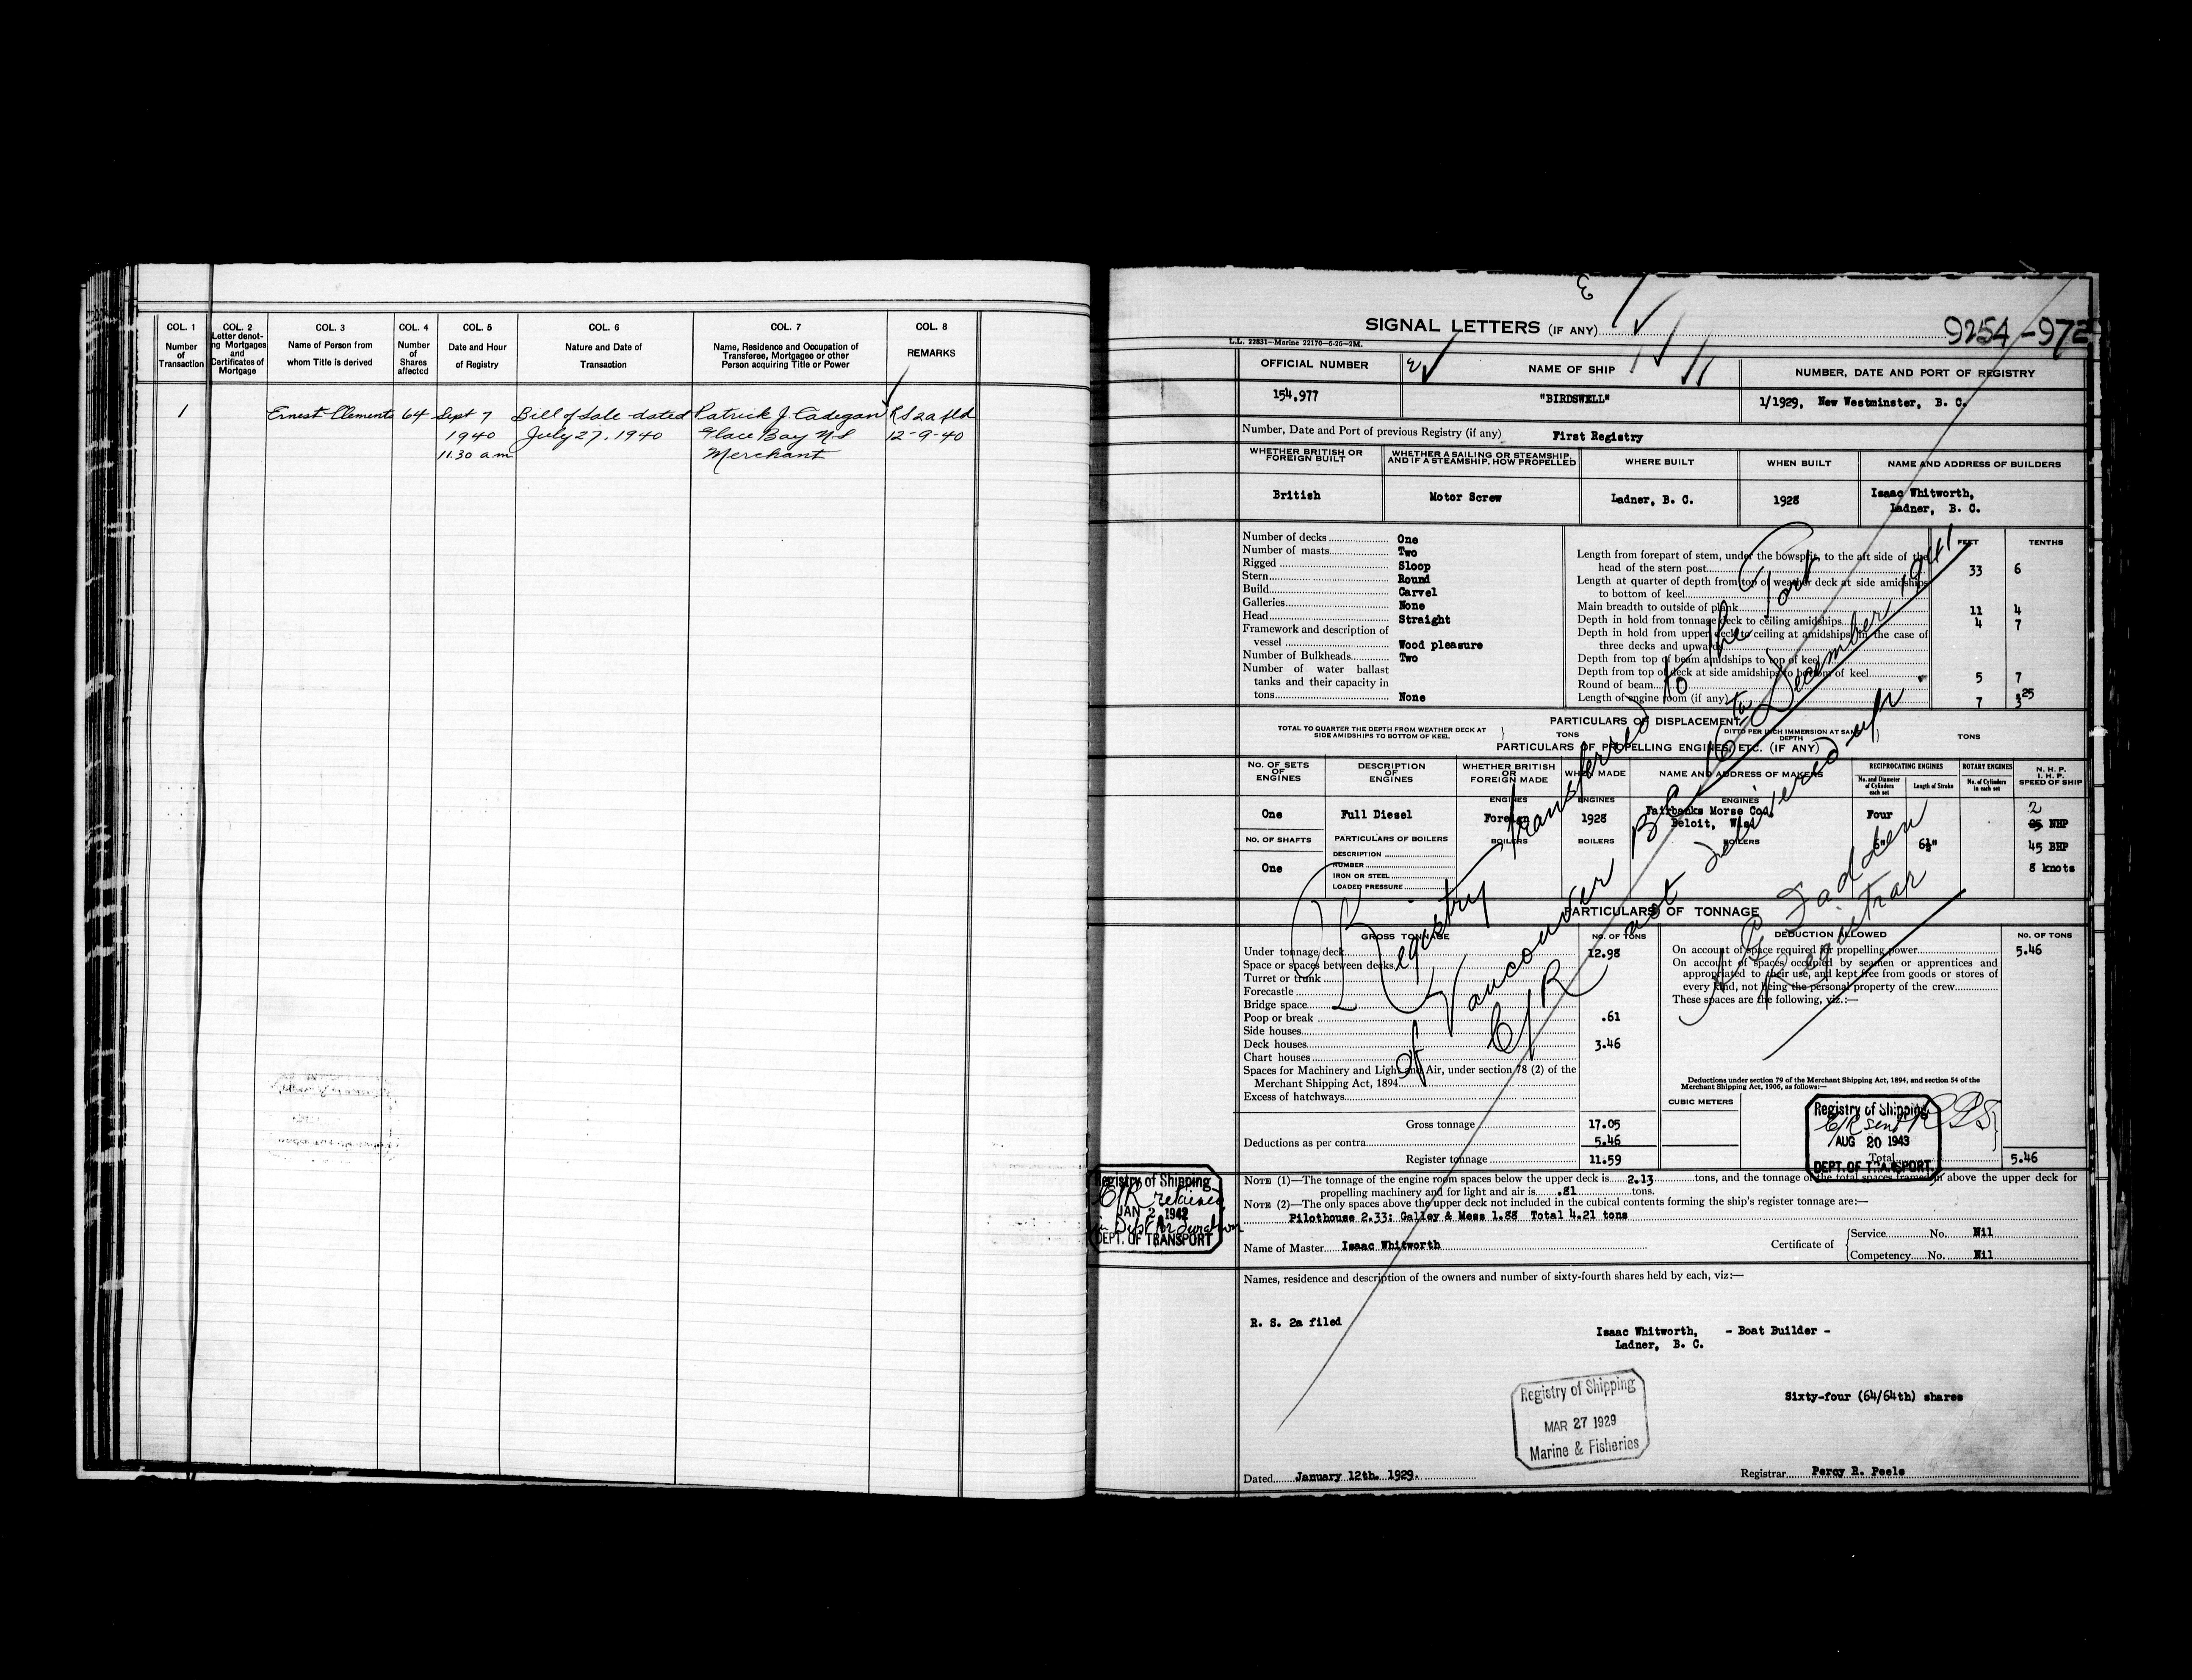 COL. 1
Number
of
Transaction
COL. 2
Letter denot-
ng Mortgages
and
Certificates of
Mortgage
COL. 3
Name of Person from
whom Title is derived
COL. 4
Number
of
Shares
affected
COL. 5
Date and Hour
of Registry
COL. 6
Nature and Date of
Transaction
COL. 7
Name, Residence and Occupation of
Transferee, Mortgagee or other
Person acquiring Title or Power
COL. 8
REMARKS
1 Ernest Clements 64 Sept 7 Bill of Sale dated Patrick J. Cadegan RS 2a fld
1940 July 27, 1940 Glace Bay NS 12-9-40
11.30 am Merchant
SIGNAL LETTERS (IF ANY)
9254-972
L.L. 22831—Marine 22170—6-26—2M.
OFFICIAL NUMBER NAME OF SHIP NUMBER, DATE AND PORT OF REGISTRY
154,977 "BIRDSWELL" 1/1929, New Westminster, B. C.
Number, Date and Port of previous Registry (if any) First Registry
WHETHER BRITISH OR
FOREIGN BUILT
WHETHER A SAILING OR STEAMSHIP,
AND IF A STEAMSHIP, HOW PROPELLED
WHERE BUILT
WHEN BUILT
NAME AND ADDRESS OF BUILDERS
British Motor Screw Ladner, B. C. 1928 Isaac Whitworth,
Ladner, B. C.
Number of decks One
Number of masts Two
Rigged Sloop
Stern Round
Build Carvel
Galleries None
Head Straight
Framework and description of
vessel Wood pleasure
Number of Bulkheads Two
Number of water ballast
tanks and their capacity in
tons None
FEET TENTHS
Length from forepart of stem, under the bowsprit, to the aft side of the
head of the stern post 33 6
Length at quarter of depth from top of weather deck at side amidships
to bottom of keel
Main breadth to outside of plank 11 4
Depth in hold from tonnage deck to ceiling amidships 4 7
Depth in hold from upper deck to ceiling at amidships, in the case of
three decks and upwards
Depth from top of beam amidships to top of keel
Depth from top of deck at side amidships to bottom of keel 5 7
Round of beam .25
Length of engine room (if any) 7 3
PARTICULARS OF DISPLACEMENT
TOTAL TO QUARTER THE DEPTH FROM WEATHER DECK AT
SIDE AMIDSHIPS TO BOTTOM OF KEEL
TONS
DITTO PER INCH IMMERSION AT SAME
DEPTH
TONS
PARTICULARS OF PROPELLING ENGINES, ETC. (IF ANY)
No. OF SETS
OF
ENGINES
DESCRIPTION
OF
ENGINES
WHETHER BRITISH
OR
FOREIGN MADE
WHEN MADE
NAME AND ADDRESS OF MAKERS
RECIPROCATING ENGINES
No. and Diameter
of Cylinders
each set
Length of Stroke
ROTARY ENGINES
No. of Cylinders
in each set
N. H. P.
I. H. P.
SPEED OF SHIP
ENGINES ENGINES ENGINES
One Full Diesel Foreign 1928 Fairbanks Morse Co., Four
Beloit, Wis.
2
NHP
No. OF SHAFTS PARTICULARS OF BOILERS BOILERS BOILERS BOILERS 6" 6½" 45 BHP
DESCRIPTION
One NUMBER 8 knots
IRON OR STEEL
LOADED PRESSURE
PARTICULARS OF TONNAGE
GROSS TONNAGE No. OF TONS
Under tonnage deck 12.98
Space or spaces between decks
Turret or trunk
Forecastle
Bridge space
Poop or break .61
Side houses
Deck houses 3.46
Chart houses
Spaces for Machinery and Light and Air, under section 78 (2) of the
Merchant Shipping Act, 1894
Excess of hatchways
Gross tonnage 17.05
Deductions as per contra 5.46
Register tonnage 11.59
DEDUCTION ALLOWED No. OF TONS
On account of space required for propelling power 5.46
On account of spaces occupied by seamen or apprentices and
appropriated to their use, and kept free from goods or stores of
every kind, not being the personal property of the crew
These spaces are the following, viz.:—
Deductions under section 79 of the Merchant Shipping Act, 1894, and section 54 of the
Merchant Shipping Act, 1906, as follows:—
CUBIC METERS
Total 5.46
Registry of Shipping
C/R sent
AUG 20 1943
DEPT. OF TRANSPORT
Registry transferred to the Port
of Vancouver BC 16th December 1941
C/R not delivered up
Registrar
Registry of Shipping
C/R retained
JAN 2 1942
in Dept for duration
DEPT. OF TRANSPORT
NOTE (1)—The tonnage of the engine room spaces below the upper deck is 2.13 tons, and the tonnage of the total spaces framed in above the upper deck for
propelling machinery and for light and air is .81 tons.
NOTE (2)—The only spaces above the upper deck not included in the cubical contents forming the ship's register tonnage are:—
Pilothouse 2.33; Galley & Mess 1.88 Total 4.21 tons
Name of Master Isaac Whitworth
Certificate of
Service No. Nil
Competency No. Nil
Names, residence and description of the owners and number of sixty-fourth shares held by each, viz:—
R. S. 2a filed
Isaac Whitworth, - Boat Builder -
Ladner, B. C.
Sixty-four (64/64th) shares
Registry of Shipping
MAR 27 1929
Marine & Fisheries
Dated January 12th. 1929.
Registrar Percy R. Peele